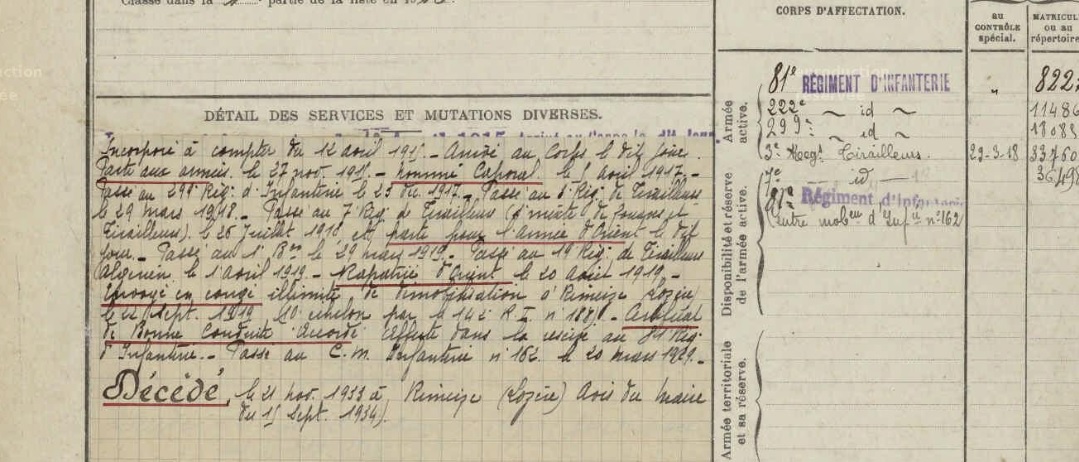 Classé dans la partie de la liste en
DÉTAIL DES SERVICES ET MUTATIONS DIVERSES.
Incorporé à compter du 12 avril 1915 _ Arrivé au Corps le dit jour.
Parti aux armées le 27 nov. 191 _ nommé Caporal le 8 avril 1917._
Passé au 299e Rég. d'Infanterie le 25 1917._ Passé au Rég. de Tirailleurs
le 29 mars 1918._ Passé au 7e Rég. de Tirailleurs (d'mixte de zouaves et
Tirailleurs) le 26 juillet 1918 et parti pour l'armée d'Orient le dit
jour._ Passé au 1er le 29 mars 1919._ Passé au 19 Rég. de Tirailleurs
algérien le 1 avril 1919._ Rapatrié d'Orient le 20 août 1919._
Envoyé en congé illimité de démobilisation à Rimeize Lozère
le 22 Sept. 1919, 10e échelon par le 142e R I n° _ Certificat
de Bonne Conduite "Accordé" Affecté dans la réserve au 81 Rég.
d'Infanterie._ Passé au C. M. Infanterie n° 162 le 20 mars 1929._
Décédé, le 21 nov. 1933 à Rimeize (Lozère) Avis du Maire
du 15 Sept. 1934).
CORPS D'AFFECTATION.
au
CONTRÔLE
spécial.
MATRICUL
ou au
répertoire
Armée
active.
81e RÉGIMENT D'INFANTERIE " 822
222e ~ id ~ 11486
299e ~ id ~ 18083
3e Regt Tirailleurs. 29-3-18 33760
7e id 36498
Disponibilité et réserve
de l'armée active.
81e Régiment d'Infanterie
(Centre mobeu d'Infie n°162
Armée territoriale
et sa réserve.